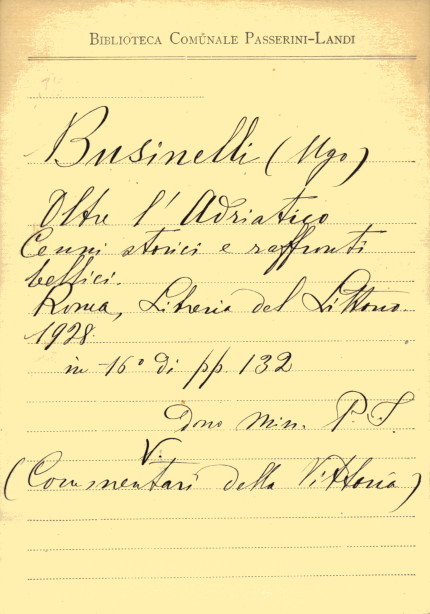 BIBLIOTECA COMUNALE PASSERINI-LANDI
Businelli (Ugo)
Oltre l' Adriatico
Cenni storici e raffronti
bellici.
Roma, Libreria del Littorio
1928.
in -16° di pp. 132
Dono Min. P. S.
V.
(Commentari della Vittoria)